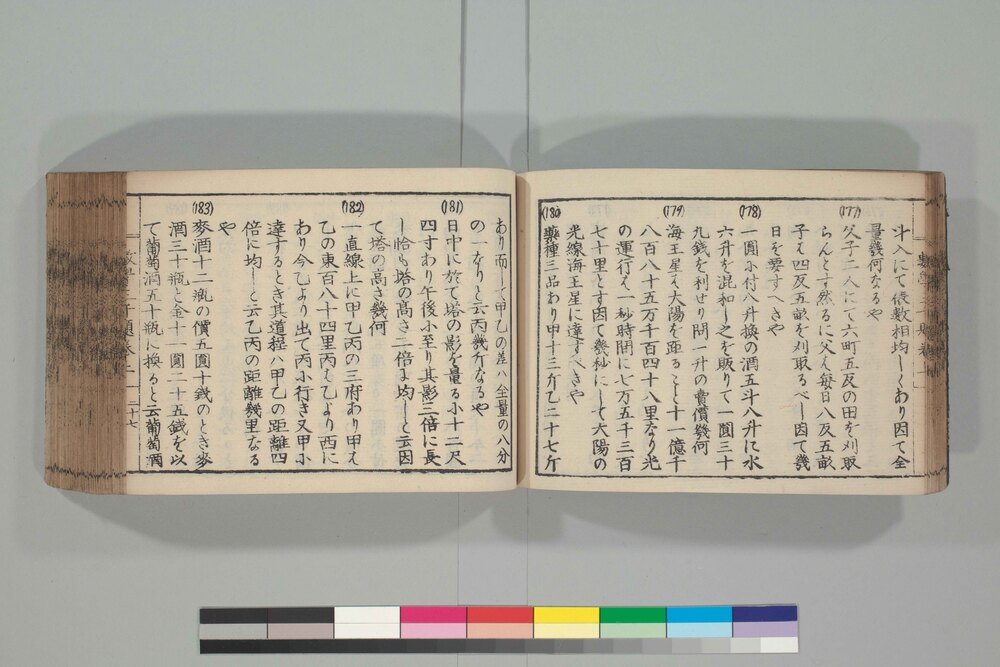 斗入にて俵数相均しくあり因て全
量幾何なるや
(177)
父子二人にて六町五反の田を刈取
らんとす然るに父は毎日八反五畝
子は四反五畝を刈取るべし因て幾
日を要すへきや
(178)
一圓に付八升換の酒五斗八升に水
六升を混和し之を販りて一圓三十
九錢を利せり問一升の賣價幾何
(179)
海王星は大陽を距ること十一億千
八百八十五万千百四十八里なり光
の運行は一秒時間に七万五千三百
七十里とす因て幾秒にして大陽の
光線海王星に達すべきや
(180)
藥種三品あり甲十三斤乙二十七斤
あり而して甲乙の差ハ全量の八分
の一なりと云丙幾斤なるや
(181)
日中に於て塔の影を量るに十二尺
四寸あり午後に至り其影三倍に長
し恰も塔の高さ二倍に均しと云因
て塔の高さ幾何
(182)
一直線上に甲乙丙の三府あり甲は
乙の東百八十四里丙は乙より西に
あり今乙より出て丙に行き又甲に
達するとき其道程ハ甲乙の距離四
倍に均しと云乙丙の距離幾里なる
や
(183)
麥酒十二瓶の價五圓十錢のとき麥
酒三十瓶と金十一圓二十五錢を以
て葡萄酒五十瓶に換ると云葡萄酒